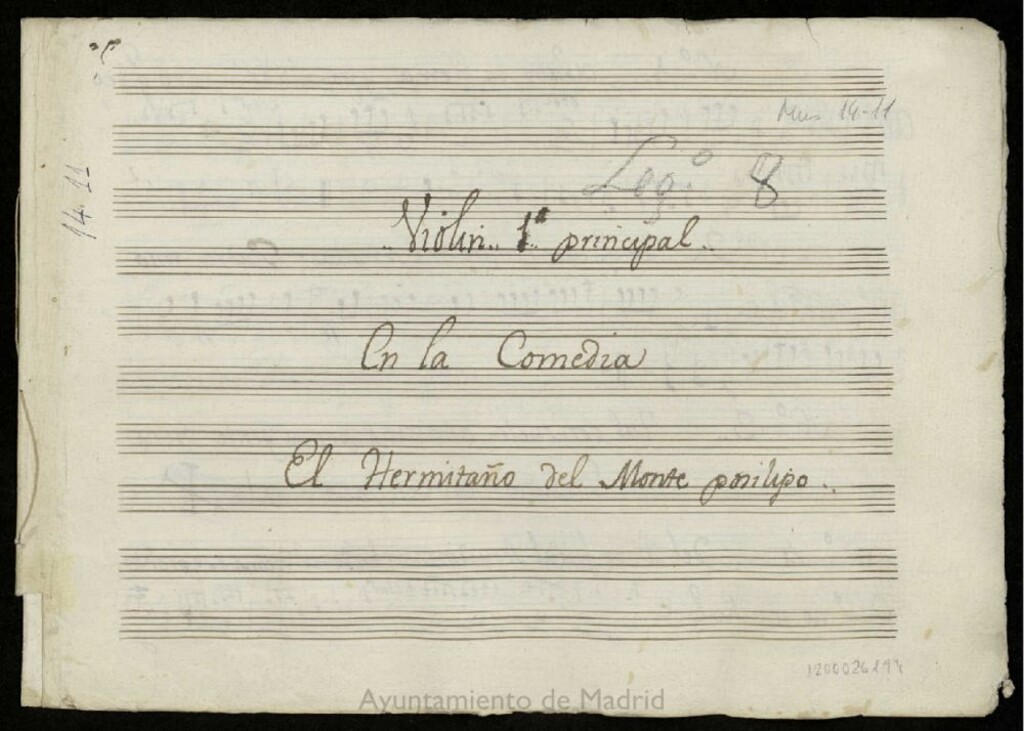 Mus 14-11
14-11
Leg.º 8
Violin.. 1º principal..
En la Comedia
El Hermitaño del Monte posilipo..
Ayuntamiento de Madrid